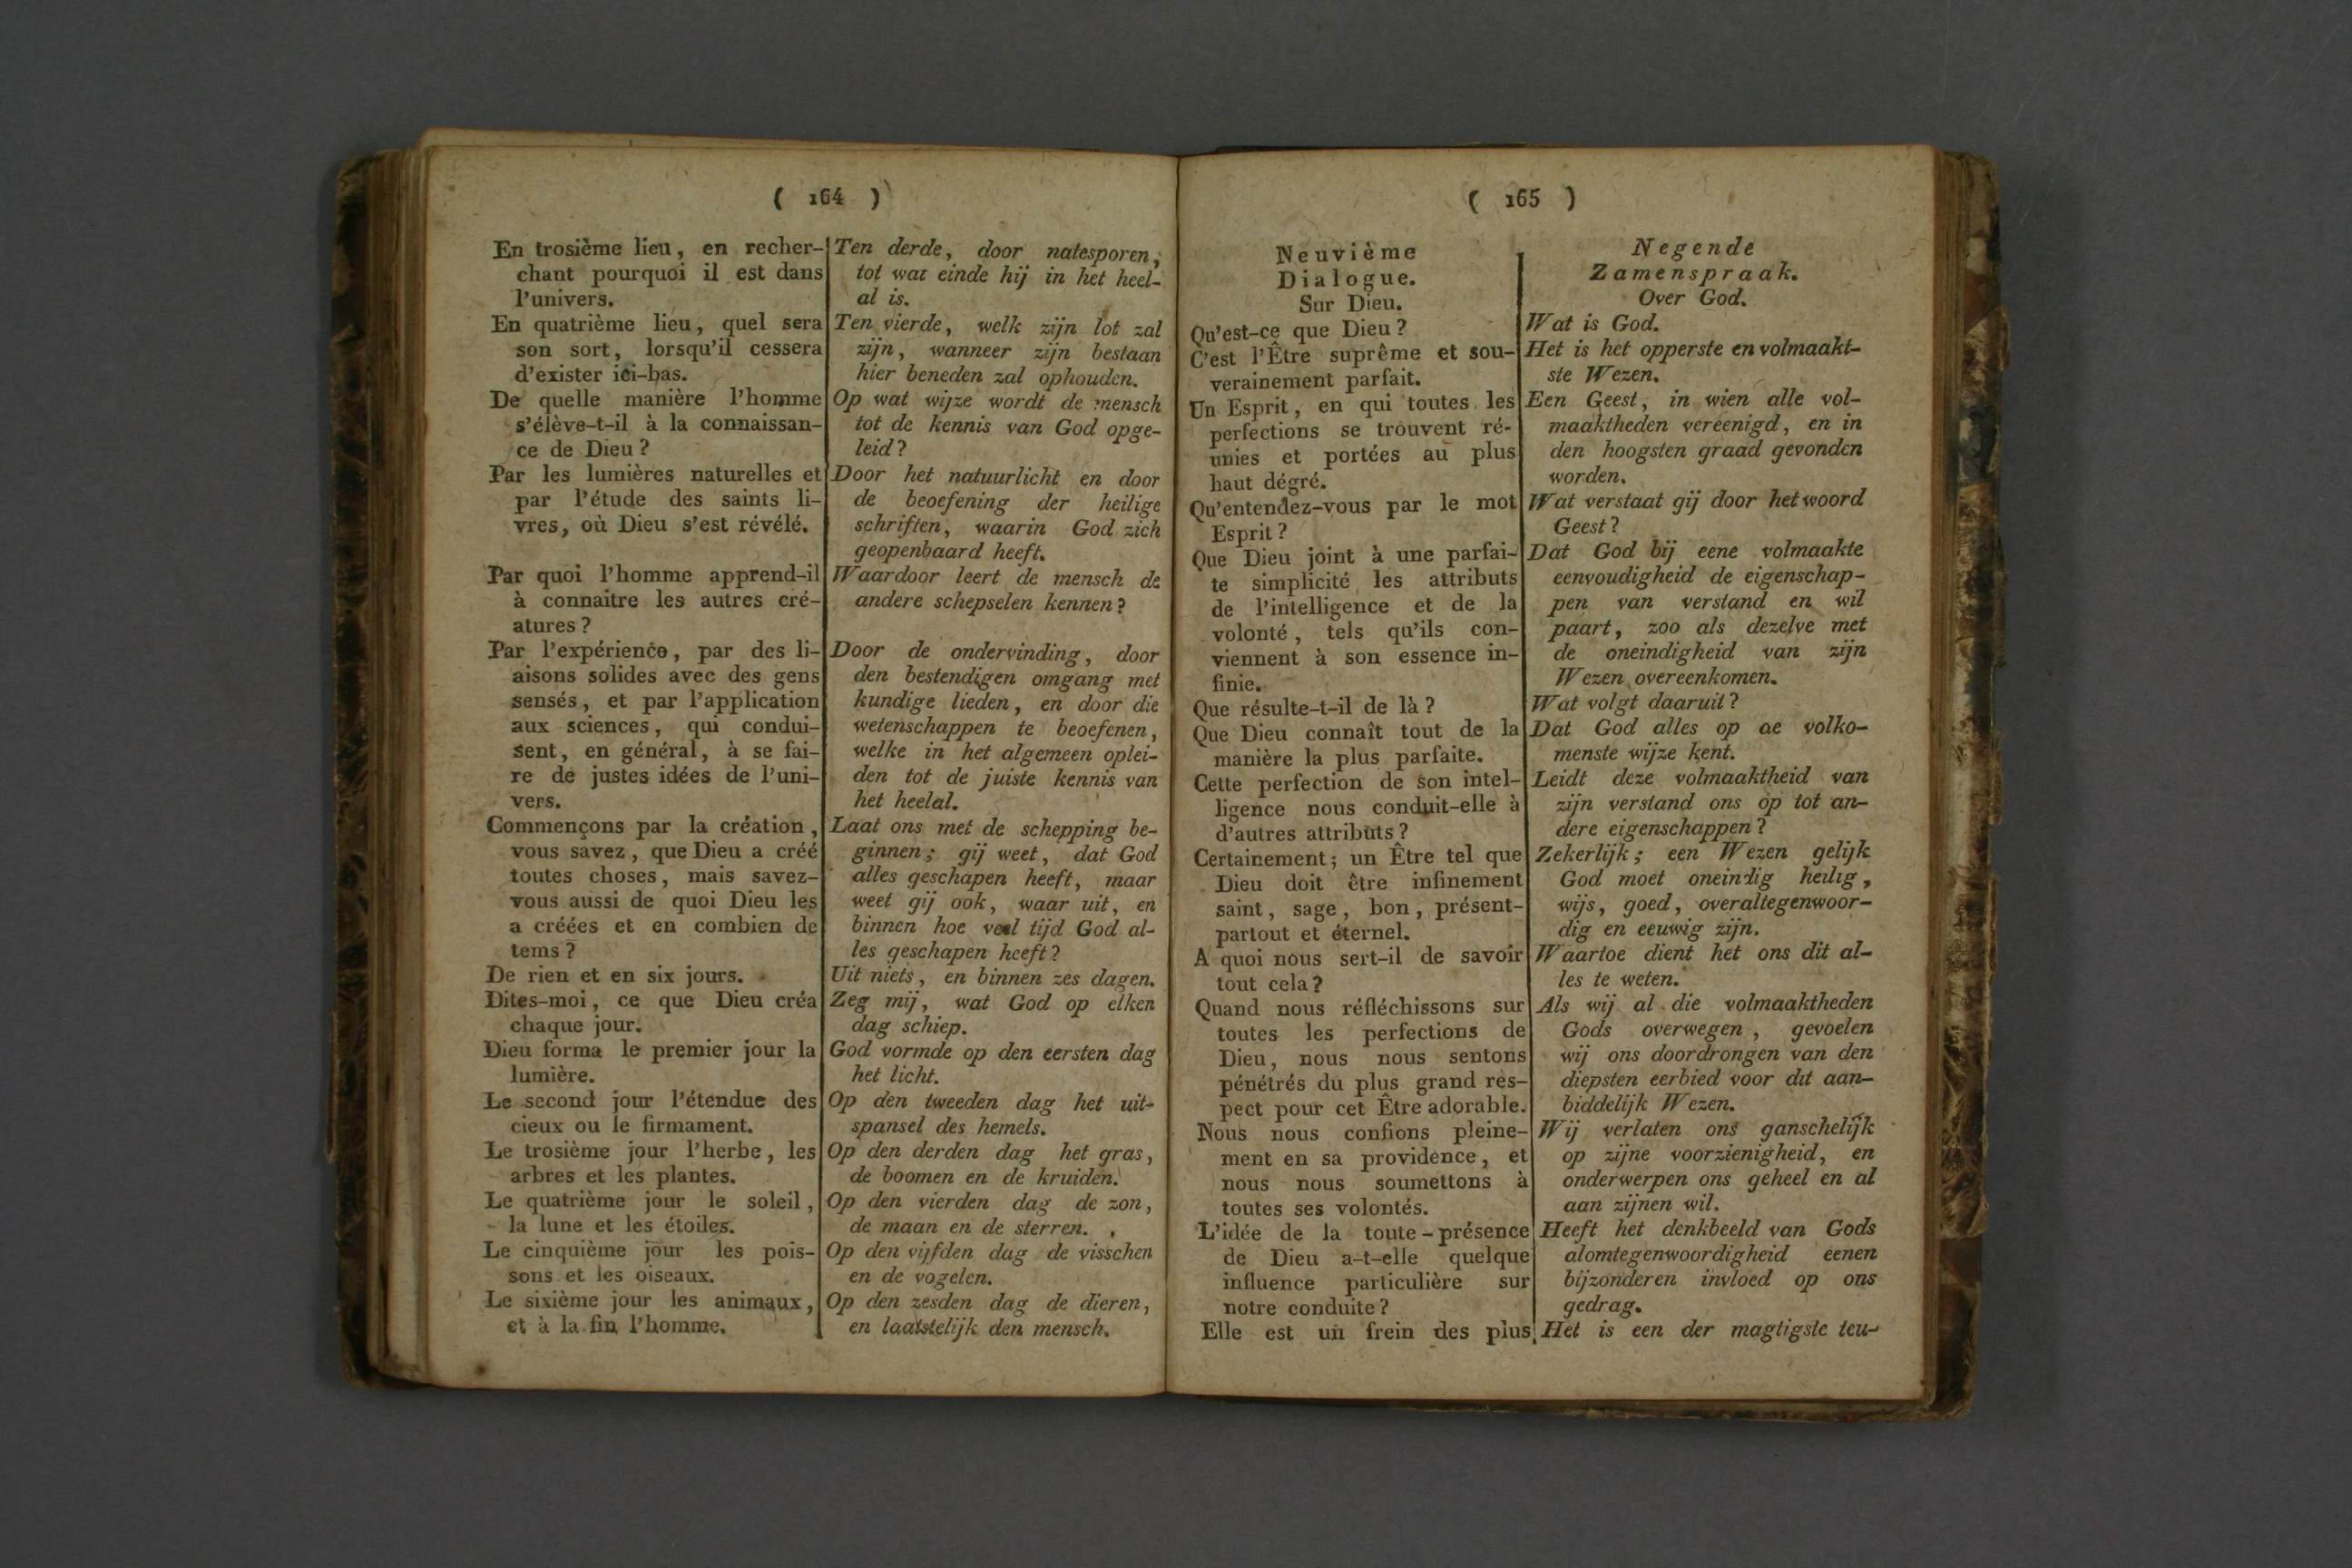 ( 164 )
En trosième lieu, en recher-
chant pourquoi il est dans
l'univers.
En quatrième lieu, quel sera
son sort, lorsqu'il cessera
d'exister ici-bas.
De quelle manière l'homme
s'élève-t-il à la connaissan-
ce de Dieu ?
Par les lumières naturelles et
par l'étude des saints li-
vres, où Dieu s'est révélé.
Par quoi l'homme apprend-il
à connaitre les autres cré-
atures ?
Par l'expérience, par des li-
aisons solides avec des gens
sensés, et par l'application
aux sciences, qui condui-
sent, en général, à se fai-
re de justes idées de l'uni-
vers.
Commençons par la création,
vous savez, que Dieu a créé
toutes choses, mais savez-
vous aussi de quoi Dieu les
a créées et en combien de
tems ?
De rien et en six jours.
Dites-moi, ce que Dieu créa
chaque jour.
Dieu forma le premier jour la
lumière.
Le second jour l'étendue des
cieux ou le firmament.
Le trosième jour l'herbe, les
arbres et les plantes.
Le quatrième jour le soleil,
la lune et les étoiles.
Le cinquième jour les pois-
sons et les oiseaux.
Le sixième jour les animaux,
et à la fin l'homme.
Ten derde, door natesporen,
tot wat einde hij in het heel-
al is.
Ten vierde, welk zijn lot zal
zijn, wanneer zijn bestaan
hier beneden zal ophouden.
Op wat wijze wordt de mensch
tot de kennis van God opge-
leid ?
Door het natuurlicht en door
de beoefening der heilige
schriften, waarin God zich
geopenbaard heeft.
Waardoor leert de mensch de
andere schepselen kennen ?
Door de ondervinding, door
den bestendigen omgang met
kundige lieden, en door die
wetenschappen te beoefenen,
welke in het algemeen oplei-
den tot de juiste kennis van
het heelal.
Laat ons met de schepping be-
ginnen; gij weet, dat God
alles geschapen heeft, maar
weet gij ook, waar uit, en
binnen hoe veel tijd God al-
les geschapen heeft ?
Uit niets, en binnen zes dagen.
Zeg mij, wat God op elken
dag schiep.
God vormde op den eersten dag
het licht.
Op den tweeden dag het uit-
spansel des hemels.
Op den derden dag het gras,
de boomen en de kruiden.
Op den vierden dag de zon,
de maan en de sterren.
Op den vijfden dag de visschen
en de vogelen.
Op den zesden dag de dieren,
en laatstelijk den mensch.
( 165 )
Neuvième
Dialogue.
Sur Dieu.
Qu'est-ce que Dieu ?
C'est l'Être suprême et sou-
verainement parfait.
Un Esprit, en qui toutes les
perfections se trouvent ré-
unies et portées au plus
haut dégré.
Qu'entendez-vous par le mot
Esprit ?
Que Dieu joint à une parfai-
te simplicité les attributs
de l'intelligence et de la
volonté, tels qu'ils con-
viennent à son essence in-
finie.
Que résulte-t-il de là ?
Que Dieu connaît tout de la
manière la plus parfaite.
Cette perfection de son intel-
ligence nous conduit-elle à
d'autres attributs ?
Certainement; un Être tel que
Dieu doit être infinement
saint, sage, bon, présent-
partout et éternel.
A quoi nous sert-il de savoir
tout cela ?
Quand nous réfléchissons sur
toutes les perfections de
Dieu, nous nous sentons
pénétrés du plus grand res-
pect pour cet Être adorable.
Nous nous confions pleine-
ment en sa providence, et
nous nous soumettons à
toutes ses volontés.
L'idée de la toute-présence
de Dieu a-t-elle quelque
influence particulière sur
notre conduite ?
Elle est un frein des plus
Negende
Zamenspraak.
Over God.
Wat is God.
Het is het opperste en volmaakt-
ste Wezen.
Een Geest, in wien alle vol-
maaktheden vereenigd, en in
den hoogsten graad gevonden
worden.
Wat verstaat gij door het woord
Geest ?
Dat God bij eene volmaakte
eenvoudigheid de eigenschap-
pen van verstand en wil
paart, zoo als dezelve met
de oneindigheid van zijn
Wezen overeenkomen.
Wat volgt daaruit ?
Dat God alles op de volko-
menste wijze kent.
Leidt deze volmaaktheid van
zijn verstand ons op tot an-
dere eigenschappen ?
Zekerlijk; een Wezen gelijk
God moet oneindig heilig,
wijs, goed, overaltegenwoor-
dig en eeuwig zijn.
Waartoe dient het ons dit al-
les te weten.
Als wij al die volmaaktheden
Gods overwegen, gevoelen
wij ons doordrongen van den
diepsten eerbied voor dit aan-
biddelijk Wezen.
Wij verlaten ons ganschelijk
op zijne voorzienigheid, en
onderwerpen ons geheel en al
aan zijnen wil.
Heeft het denkbeeld van Gods
alomtegenwoordigheid eenen
bijzonderen invloed op ons
gedrag.
Het is een der magtigste teu-